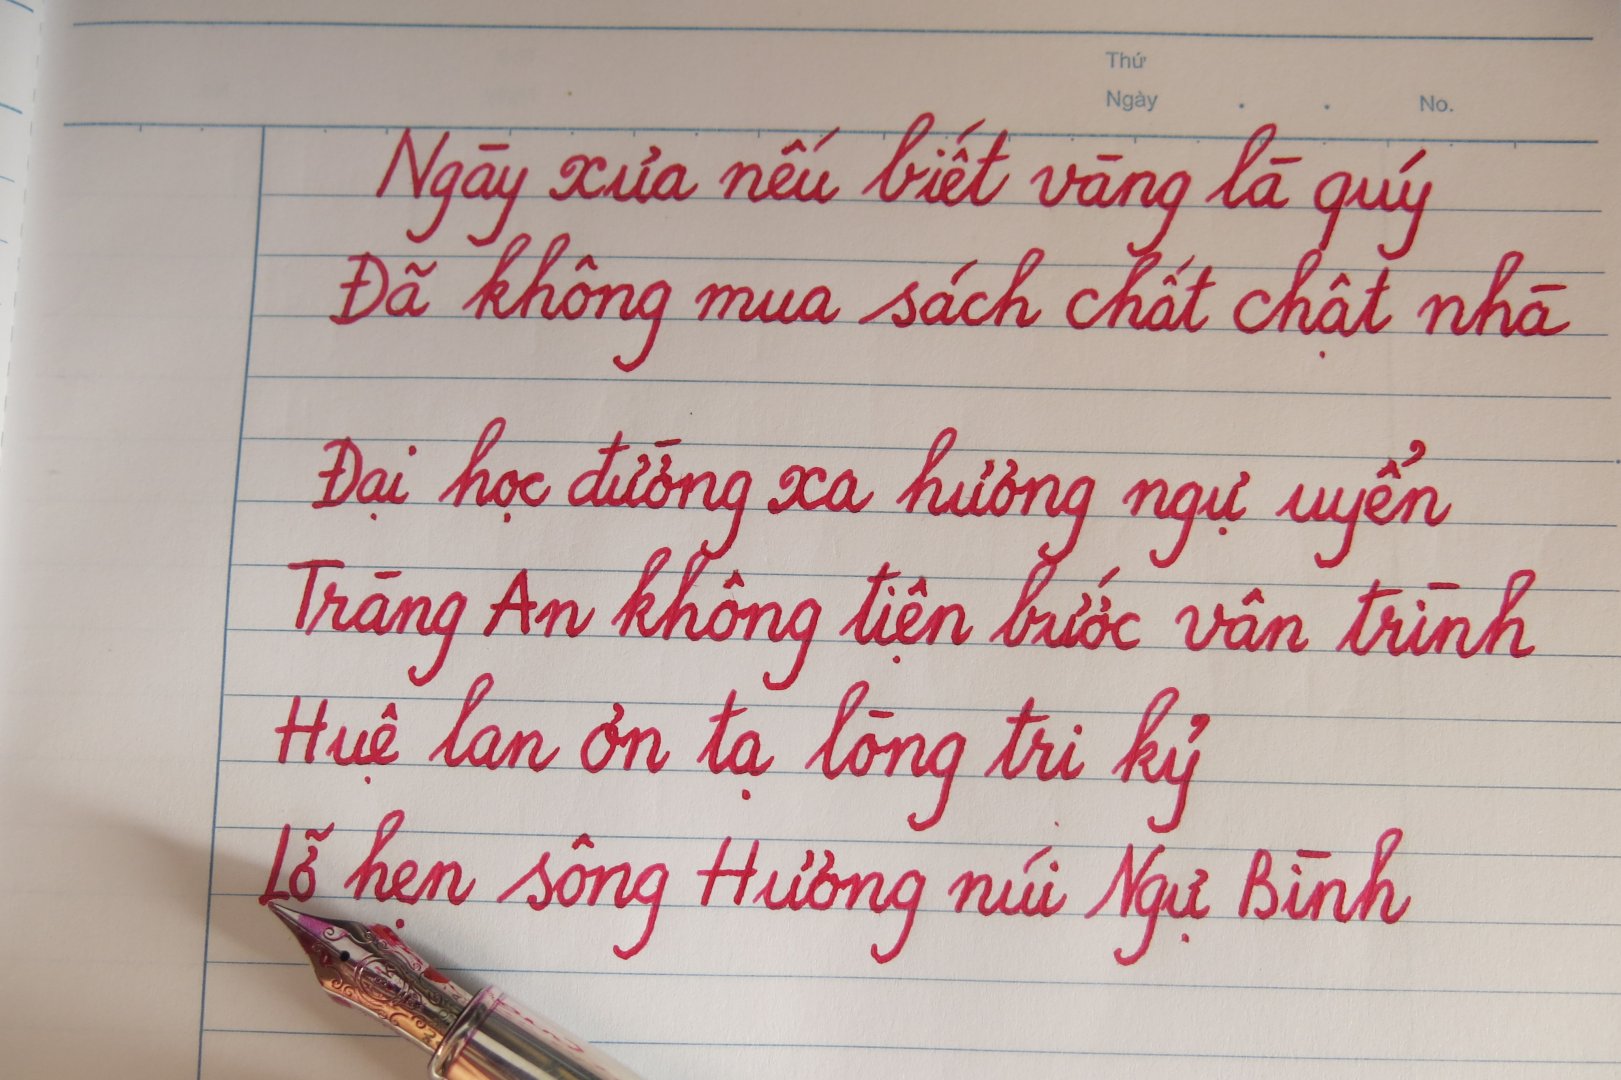 Thứ
Ngày . . No.
Ngày xưa nếu biết vàng là quý
Đã không mua sách chất chật nhà
Đại học đường xa hương ngự uyển
Tràng An không tiện bước vân trình
Huệ lan ơn tạ lòng tri kỷ
Lỡ hẹn sông Hương núi Ngự Bình